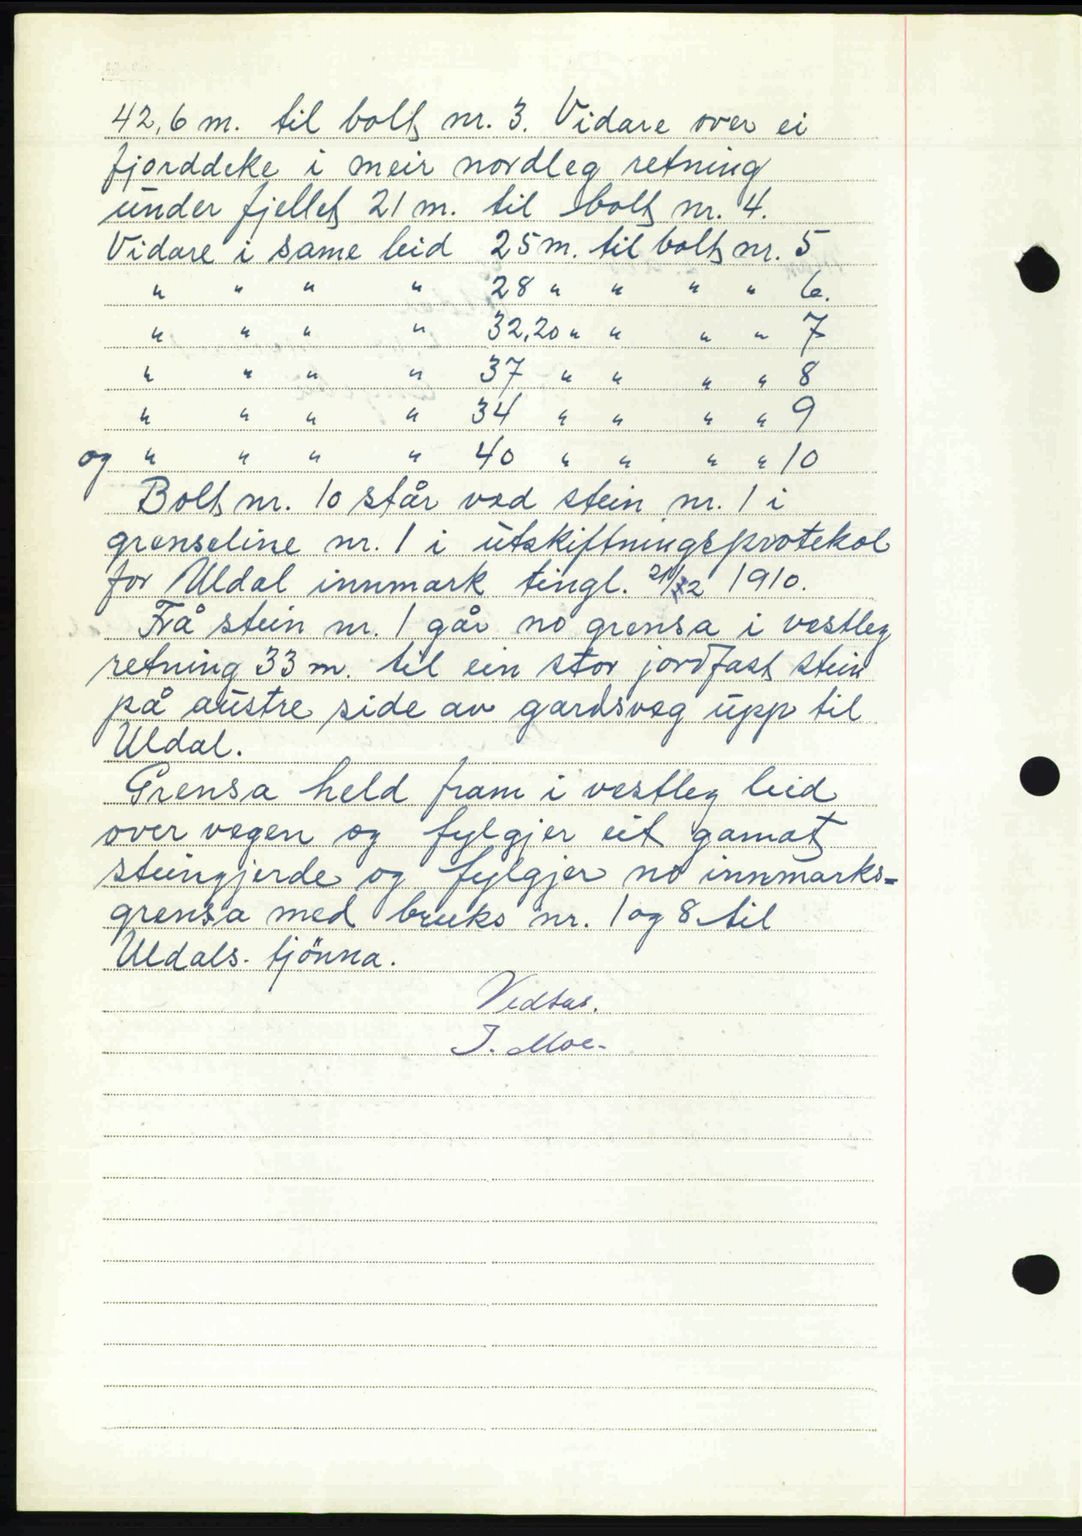 42,6 m. til bolt nr. 3. Vidare over ei
fjorddeke i meir nordleg retning
under fjellet 21 m. til bolt nr. 4.
Vidare i same leid 25 m. til bolt nr. 5
" " " " 28 " " " " 6.
" " " " 32,20 " " " " 7
" " " " 37 " " " " 8
" " " " 34 " " " " 9
og " " " " 40 " " " " 10
Bolt nr. 10 står ved stein nr. 1 i
grenseline nr. 1 i utskiftningsprotokol
for Uldal innmark tingl. 1910.
Frå stein nr. 1 går no grensa i vestleg
retning 33 m. til ein stor jordfast stein
på austre side av gardsveg upp til
Uldal.
Grensa held fram i vestleg leid
over vegen og fylgjer eit gamat
steingjerde og fylgjer no innmarks-
grensa med bruks nr. 1 og 8 til
Uldals-tjönna.
Vedtas.
J. Moe.